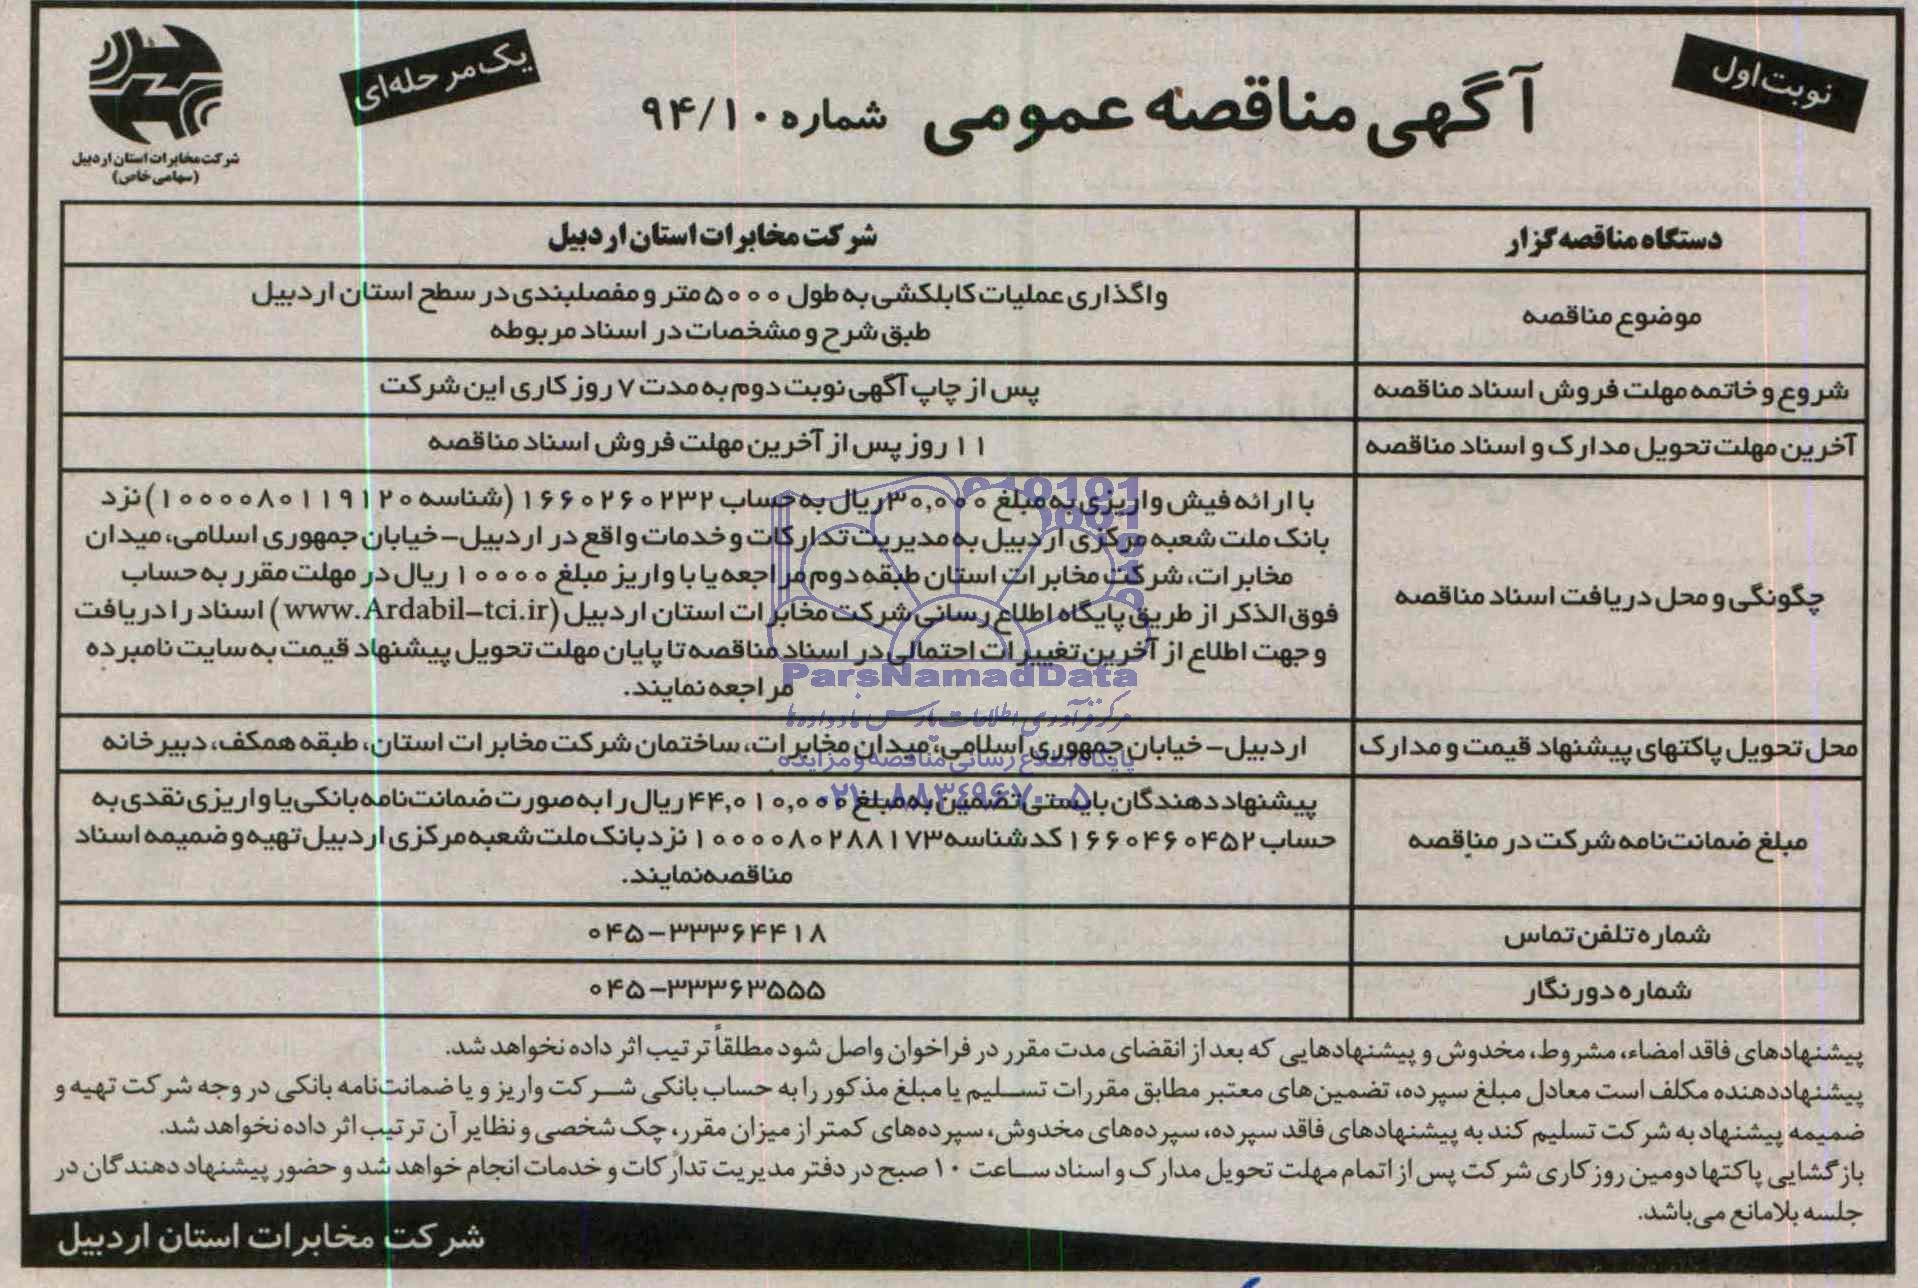 نوبت اول
آگهی مناقصه عمومی شماره ۹۴/۱۰
یک مرحله‌ای
شرکت مخابرات استان اردبیل
(سهامی خاص)
دستگاه مناقصه‌گزار
شرکت مخابرات استان اردبیل
موضوع مناقصه
واگذاری عملیات کابلکشی به طول ۵۰۰۰ متر و مفصلبندی در سطح استان اردبیل
طبق شرح و مشخصات در اسناد مربوطه
شروع و خاتمه مهلت فروش اسناد مناقصه
پس از چاپ آگهی نوبت دوم به مدت ۷ روز کاری این شرکت
آخرین مهلت تحویل مدارک و اسناد مناقصه
۱۱ روز پس از آخرین مهلت فروش اسناد مناقصه
چگونگی و محل دریافت اسناد مناقصه
با ارائه فیش واریزی به مبلغ ۳۰,۰۰۰ ریال به حساب ۱۶۶۰۲۶۰۲۳۲ (شناسه ۱۰۰۰۰۸۰۱۱۹۱۲۰) نزد
بانک ملت شعبه مرکزی اردبیل به مدیریت تدارکات و خدمات واقع در اردبیل-خیابان جمهوری اسلامی، میدان
مخابرات، شرکت مخابرات استان طبقه دوم مراجعه یا با واریز مبلغ ۱۰۰۰۰ ریال در مهلت مقرر به حساب
فوق الذکر از طریق پایگاه اطلاع رسانی شرکت مخابرات استان اردبیل (www.Ardabil-tci.ir) اسناد را دریافت
و جهت اطلاع از آخرین تغییرات احتمالی در اسناد مناقصه تا پایان مهلت تحویل پیشنهاد قیمت به سایت نامبرده
مراجعه نمایند.
محل تحویل پاکتهای پیشنهاد قیمت و مدارک
اردبیل-خیابان جمهوری اسلامی، میدان مخابرات، ساختمان شرکت مخابرات استان، طبقه همکف، دبیرخانه
مبلغ ضمانت‌نامه شرکت در مناقصه
پیشنهاد دهندگان بایستی تضمین به مبلغ ۴۴,۰۱۰,۰۰۰ ریال را به صورت ضمانت‌نامه بانکی یا واریزی نقدی به
حساب ۱۶۶۰۴۶۰۴۵۲ کد شناسه ۱۰۰۰۰۸۰۲۸۸۱۷۳ نزد بانک ملت شعبه مرکزی اردبیل تهیه و ضمیمه اسناد
مناقصه نمایند.
شماره تلفن تماس
۰۴۵-۳۳۳۶۴۴۱۸
شماره دورنگار
۰۴۵-۳۳۳۶۳۵۵۵
پیشنهادهای فاقد امضاء، مشروط، مخدوش و پیشنهادهایی که بعد از انقضای مدت مقرر در فراخوان واصل شود مطلقاً ترتیب اثر داده نخواهد شد.
پیشنهاددهنده مکلف است معادل مبلغ سپرده، تضمین‌های معتبر مطابق مقررات تسلیم یا مبلغ مذکور را به حساب بانکی شرکت واریز و یا ضمانت‌نامه بانکی در وجه شرکت تهیه و
ضمیمه پیشنهاد به شرکت تسلیم کند به پیشنهادهای فاقد سپرده، سپرده‌های مخدوش، سپرده‌های کمتر از میزان مقرر، چک شخصی و نظایر آن ترتیب اثر داده نخواهد شد.
بازگشایی پاکتها دومین روز کاری شرکت پس از اتمام مهلت تحویل مدارک و اسناد ساعت ۱۰ صبح در دفتر مدیریت تدارکات و خدمات انجام خواهد شد و حضور پیشنهاد دهندگان در
جلسه بلامانع می‌باشد.
شرکت مخابرات استان اردبیل
ParsNamadData
مرکز فرآوری اطلاعات پارس نماد داده‌ها
پایگاه اطلاع رسانی مناقصه و مزایده
۰۲۱-۸۸۳۴۹۶۷۰-۵